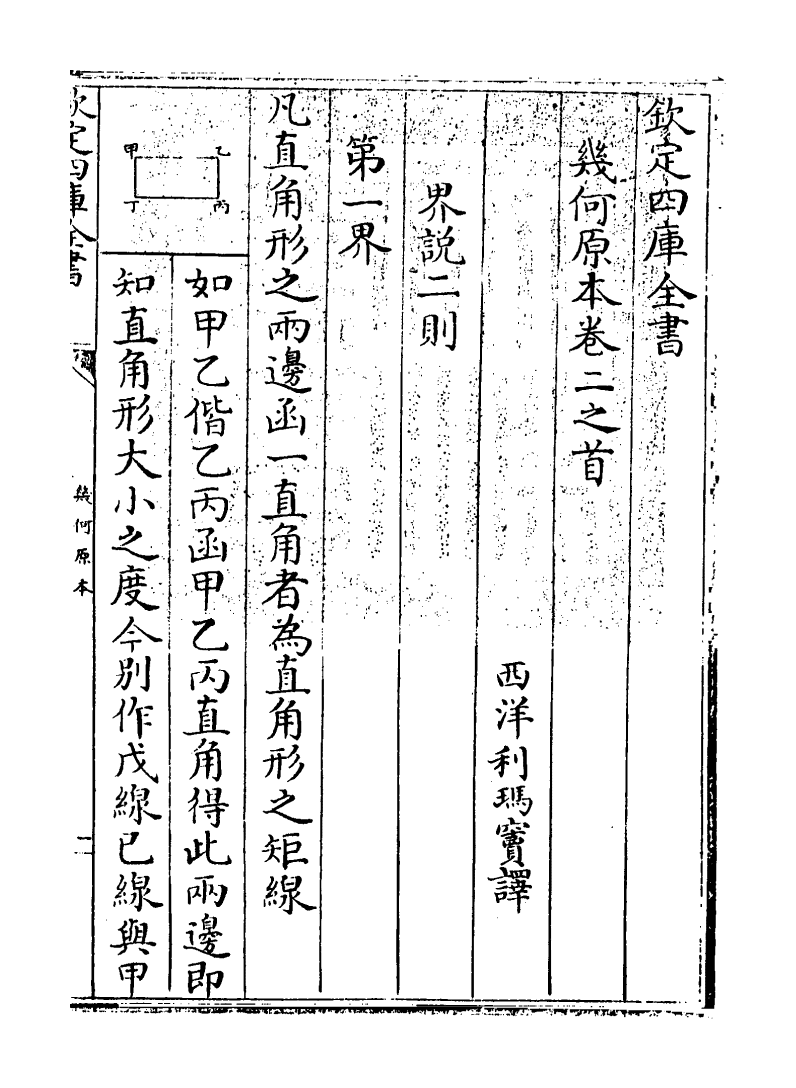 欽定四庫全書
幾何原本卷二之首
西洋利瑪竇譯
界說二則
第一界
凡直角形之兩邊函一直角者為直角形之矩線
甲 乙
丁 丙
如甲乙偕乙丙函甲乙丙直角得此兩邊即
知直角形大小之度今別作戊線已線與甲
欽定四庫全書
幾何原本
一